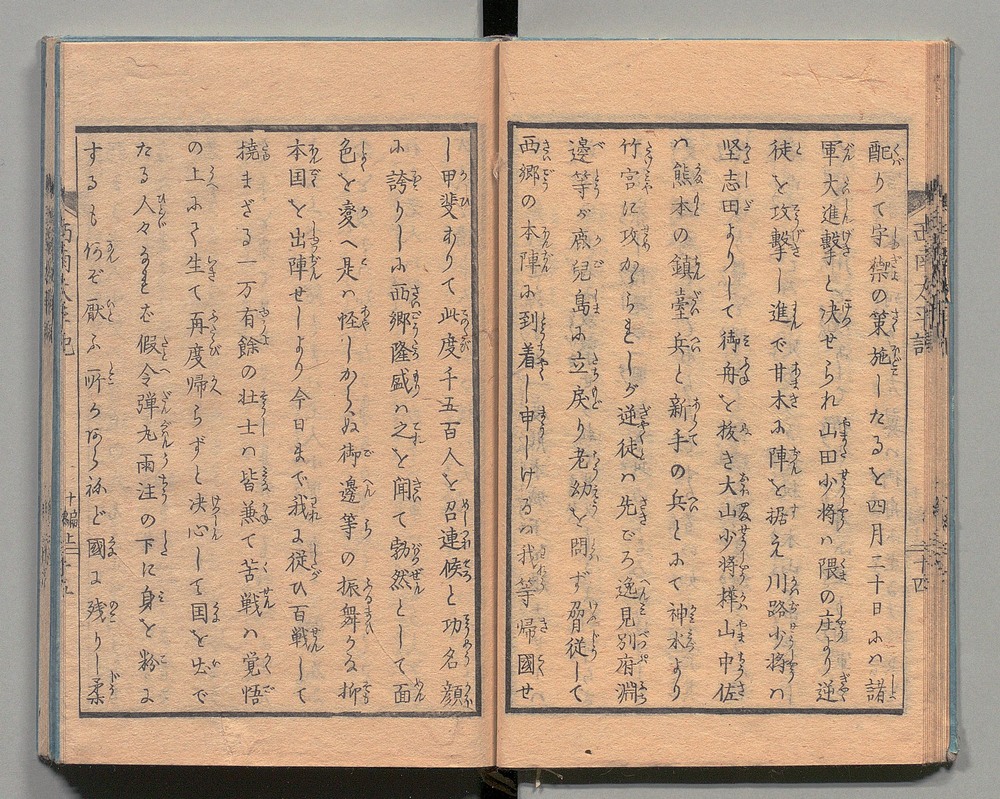 配りて守禦の策施したるを四月二十日にハ諸
軍大進撃と决せられ山田少将ハ隈の庄より逆
徒を攻撃し進で甘木に陣を据え川路少将ハ
堅志田よりして御舟を抜き大山少将樺山中佐
ハ熊本の鎮臺兵と新手の兵とにて神水より
竹宮に攻かゝらましが逆徒ハ先ごろ逸見別府淵
邊等が鹿児島に立戻り老幼を問ず脅従して
西郷の本陣に到着し申しけるハ我等帰國せ
し甲斐ありて此度千五百人を召連候と功名顔
に誇りしに西郷隆盛ハ之を聞て勃然として面
色を変へ是ハ怪しからぬ御邊等の振舞かな抑
本国を出陣せしより今日まで我に従ひ百戦して
撓まざる一万有餘の壮士ハ皆兼て苦戦ハ覚悟
の上にて生て再度帰らずと决心して国を出で
たる人々なれを假令弾丸雨注の下に身を粉に
するも何ぞ厭ふ所かあらねど國に残りし柔